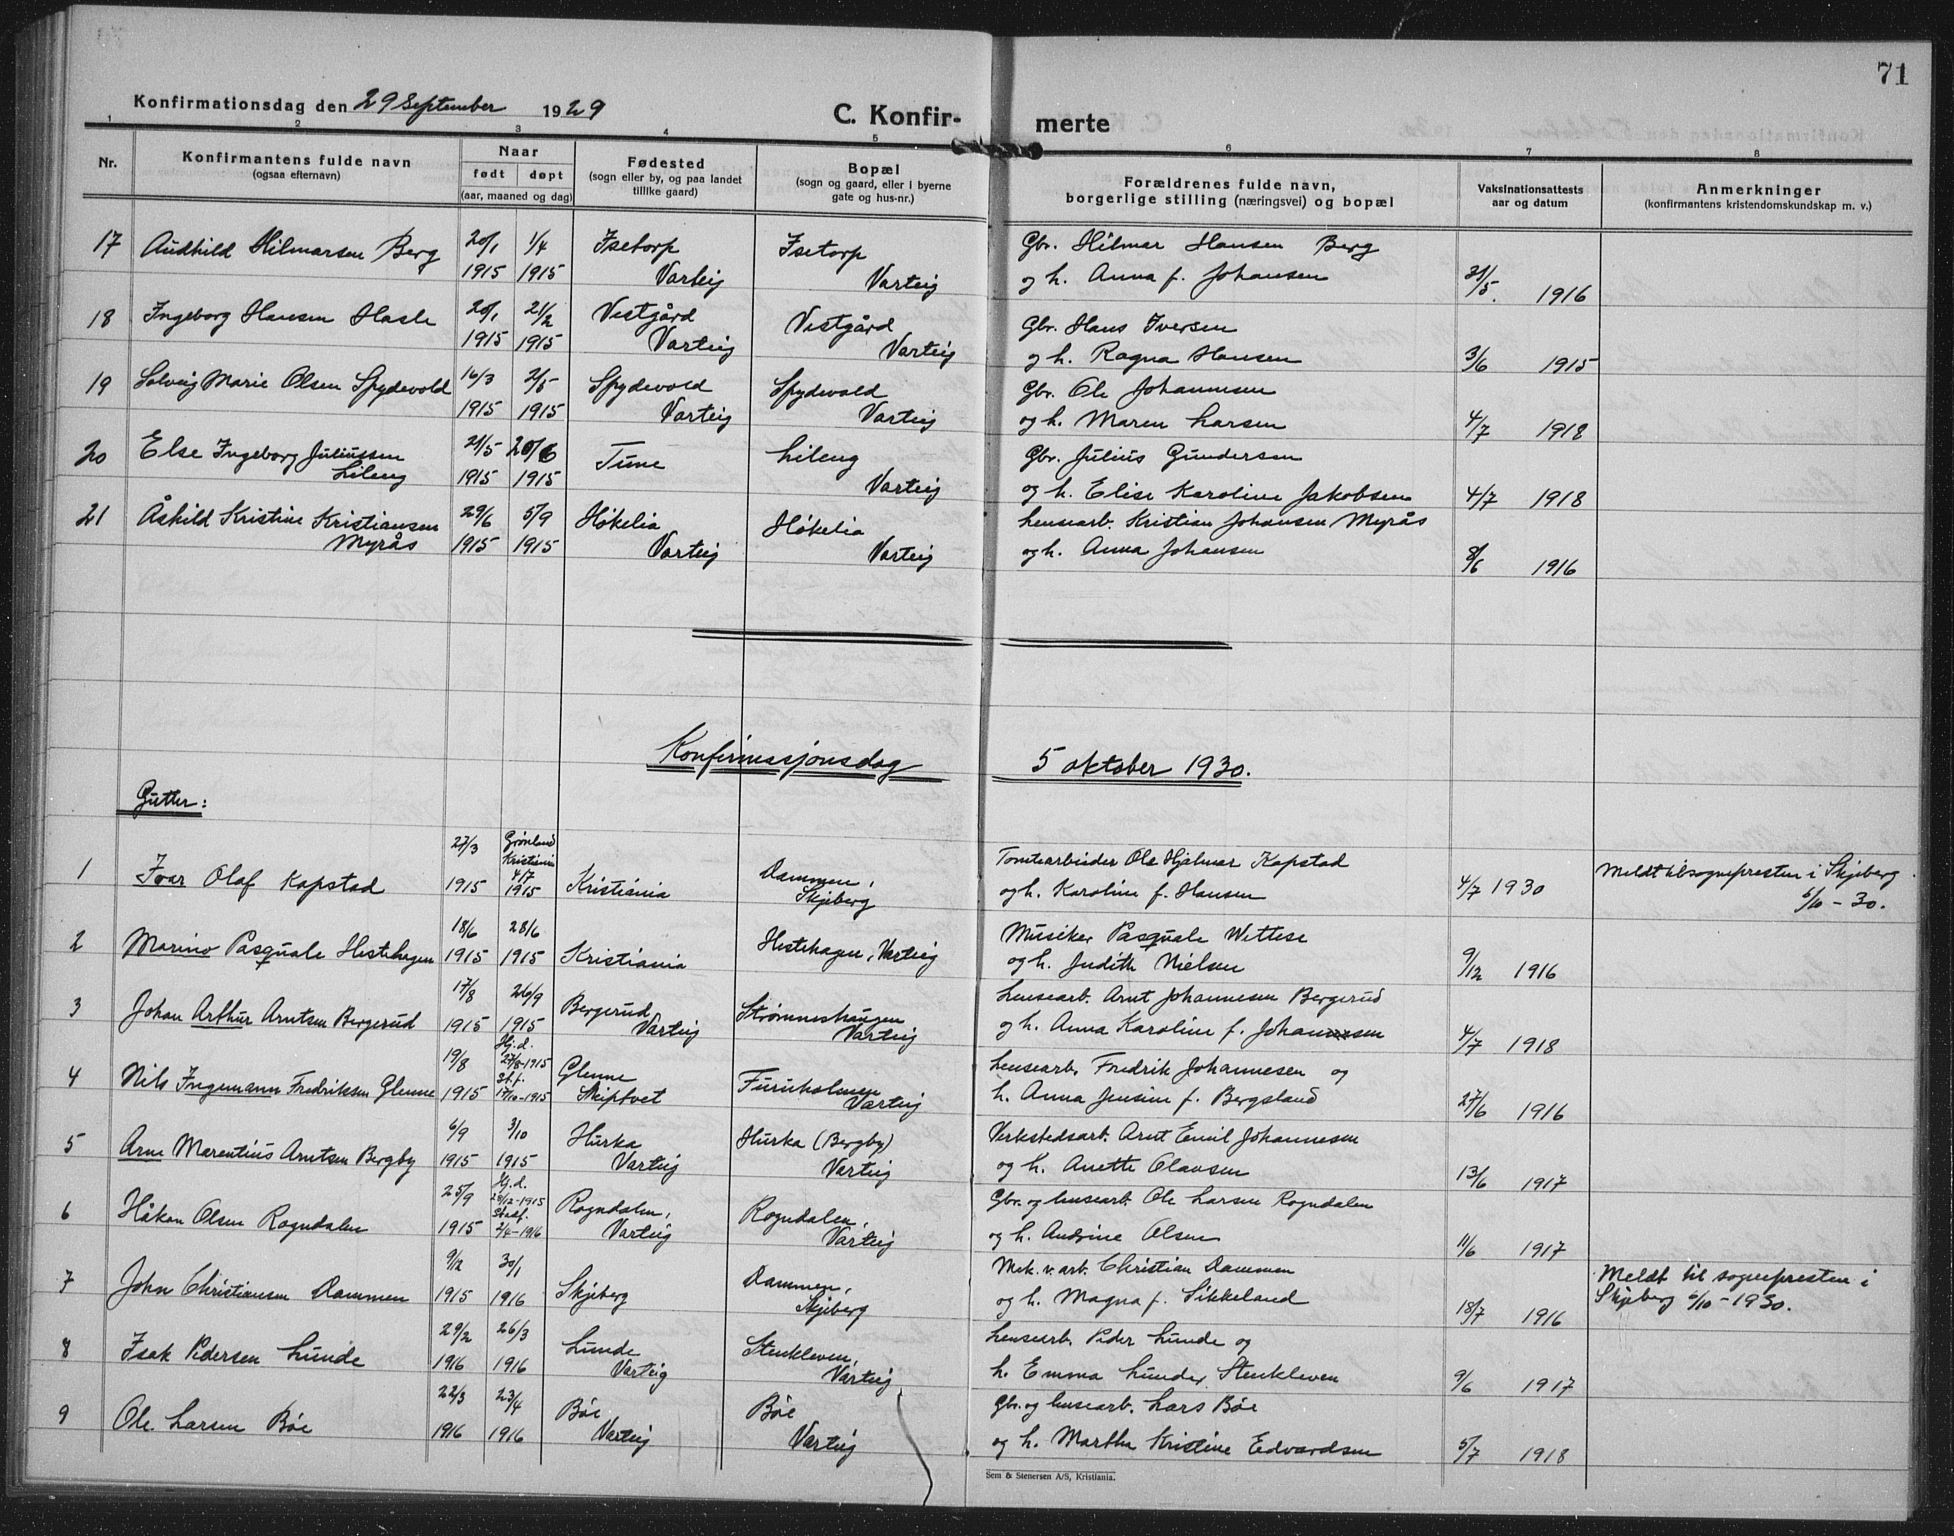 71
Konfirmationsdag den 29 September 1929
C. Konfir- merte
1 2 3 4 5 6 7 8
Nr.
Konfirmantens fulde navn
(ogsaa efternavn)
Naar
født døpt
(aar, maaned og dag)
Fødested
(sogn eller by, og paa landet
tillike gaard)
Bopæl
(sogn og gaard, eller i byerne
gate og hus-nr.)
Forældrenes fulde navn,
borgerlige stilling (næringsvei) og bopæl
Vaksinationsattests
aar og datum
Anmerkninger
(konfirmantens kristendomskundskap m. v.)
17 Audhild Hilmarsen Berg 20/1 1/4 Isetorp Isetorp Gbr. Hilmar Hansen Berg
1915 1915 Varteig Varteig og h. Anna f. Johansen 31/5. 1916
18 Ingeborg Hansen Hasle 20/1 21/2 Vestgård Vestgård Gbr. Hans Iversen
1915 1915 Varteig Varteig og h. Ragna Hansen 3/6 1915
19 Solveig Marie Olsen Spydevold 16/3 2/5 Spydevold Spydevold Gbr. Ole Johannesen
1915 1915 Varteig Varteig og h. Maren Larsen 4/7 1918
20 Else Ingeborg Juliussen 21/5 20/6 Tune Lileng Gbr. Julius Gundersen
Lileng 1915 1915 Varteig og h. Elise Karoline Jakobsen 4/7 1918
21 Åshild Kristine Kristiansen 29/6 5/9 Høkelia Høkelia Lensearb. Kristian Johansen Myrås
Myrås 1915 1915 Varteig Varteig og h. Anna Johansen 8/6 1916
Konfirmasjonsdag 5 oktober 1930.
Gutter:
1 Ivar Olaf Kapstad 27/3 1915 Grønland Kristiania 4/7 1915 Kristiania Dammen, Skjeberg
Tomtearbeider Ole Hjalmar Kapstad
og h. Karoline f. Hansen 4/7 1930 Meldt til sognepresten i Skjeberg
6/10 - 30.
2 Marino Pasquale Hestehagen 18/6 1915 28/6 1915 Kristiania Hestehagen, Varteig
Musiker Pasquale Wittese
og h. Judith Nielsen 9/12 1916
3 Johan Arthur Arntsen Bergerud 17/8 1915 26/9 1915 Bergerud Varteig Strømneshaugen Varteig
Lensearb. Arnt Johannesen Bergerud
og h. Anna Karoline f. Johannesen 4/7 1918
4 Nils Ingemann Fredriksen Glenne 19/8 1915 Hj.d. 27/8-1915 St.f. 17/10-1915 Glenne Skiptvet Furuholmen Varteig
Lensearb. Fredrik Johannesen og
h. Anna Jensine f. Bergsland 27/6 1916
5 Arne Marentius Arntsen Bergby 6/9 1915 3/10 1915 Hurka Varteig Hurka (Bergby) Varteig
Verkstedsarb. Arnt Emil Johannesen
og h. Anette Olausen 13/6 1917
6 Håkon Olsen Rogndalen 25/9 1915 Hj.d. 28/12-1915 Stadf. 2/4-1916 Rogndalen, Varteig Rogndalen, Varteig
Gbr. og lensearb. Ole Larsen Rogndalen
og h. Andrine Olsen 11/6 1917
7 John Christiansen Dammen 9/12 1915 30/1 1916 Skjeberg Dammen, Skjeberg
Mek. v. arb. Christian Dammen
og h. Magna f. Sikkeland 18/7 1916 Meldt til sognepresten i
Skjeberg 6/10 - 1930.
8 Isak Pedersen Lunde 29/2 1916 26/3 1916 Lunde Varteig Stenkleven, Varteig
Lensearb. Peder Lunde og
h. Emma Lunder Stenkleven 9/6 1917
9 Ole Larsen Bøe 22/3 1916 23/4 1916 Bøe Varteig Bøe Varteig
Gbr. og lensearb. Lars Bøe
og h. Marthe Kristine Edvardsen 5/7 1918
Sem & Stenersen A/S, Kristiania.